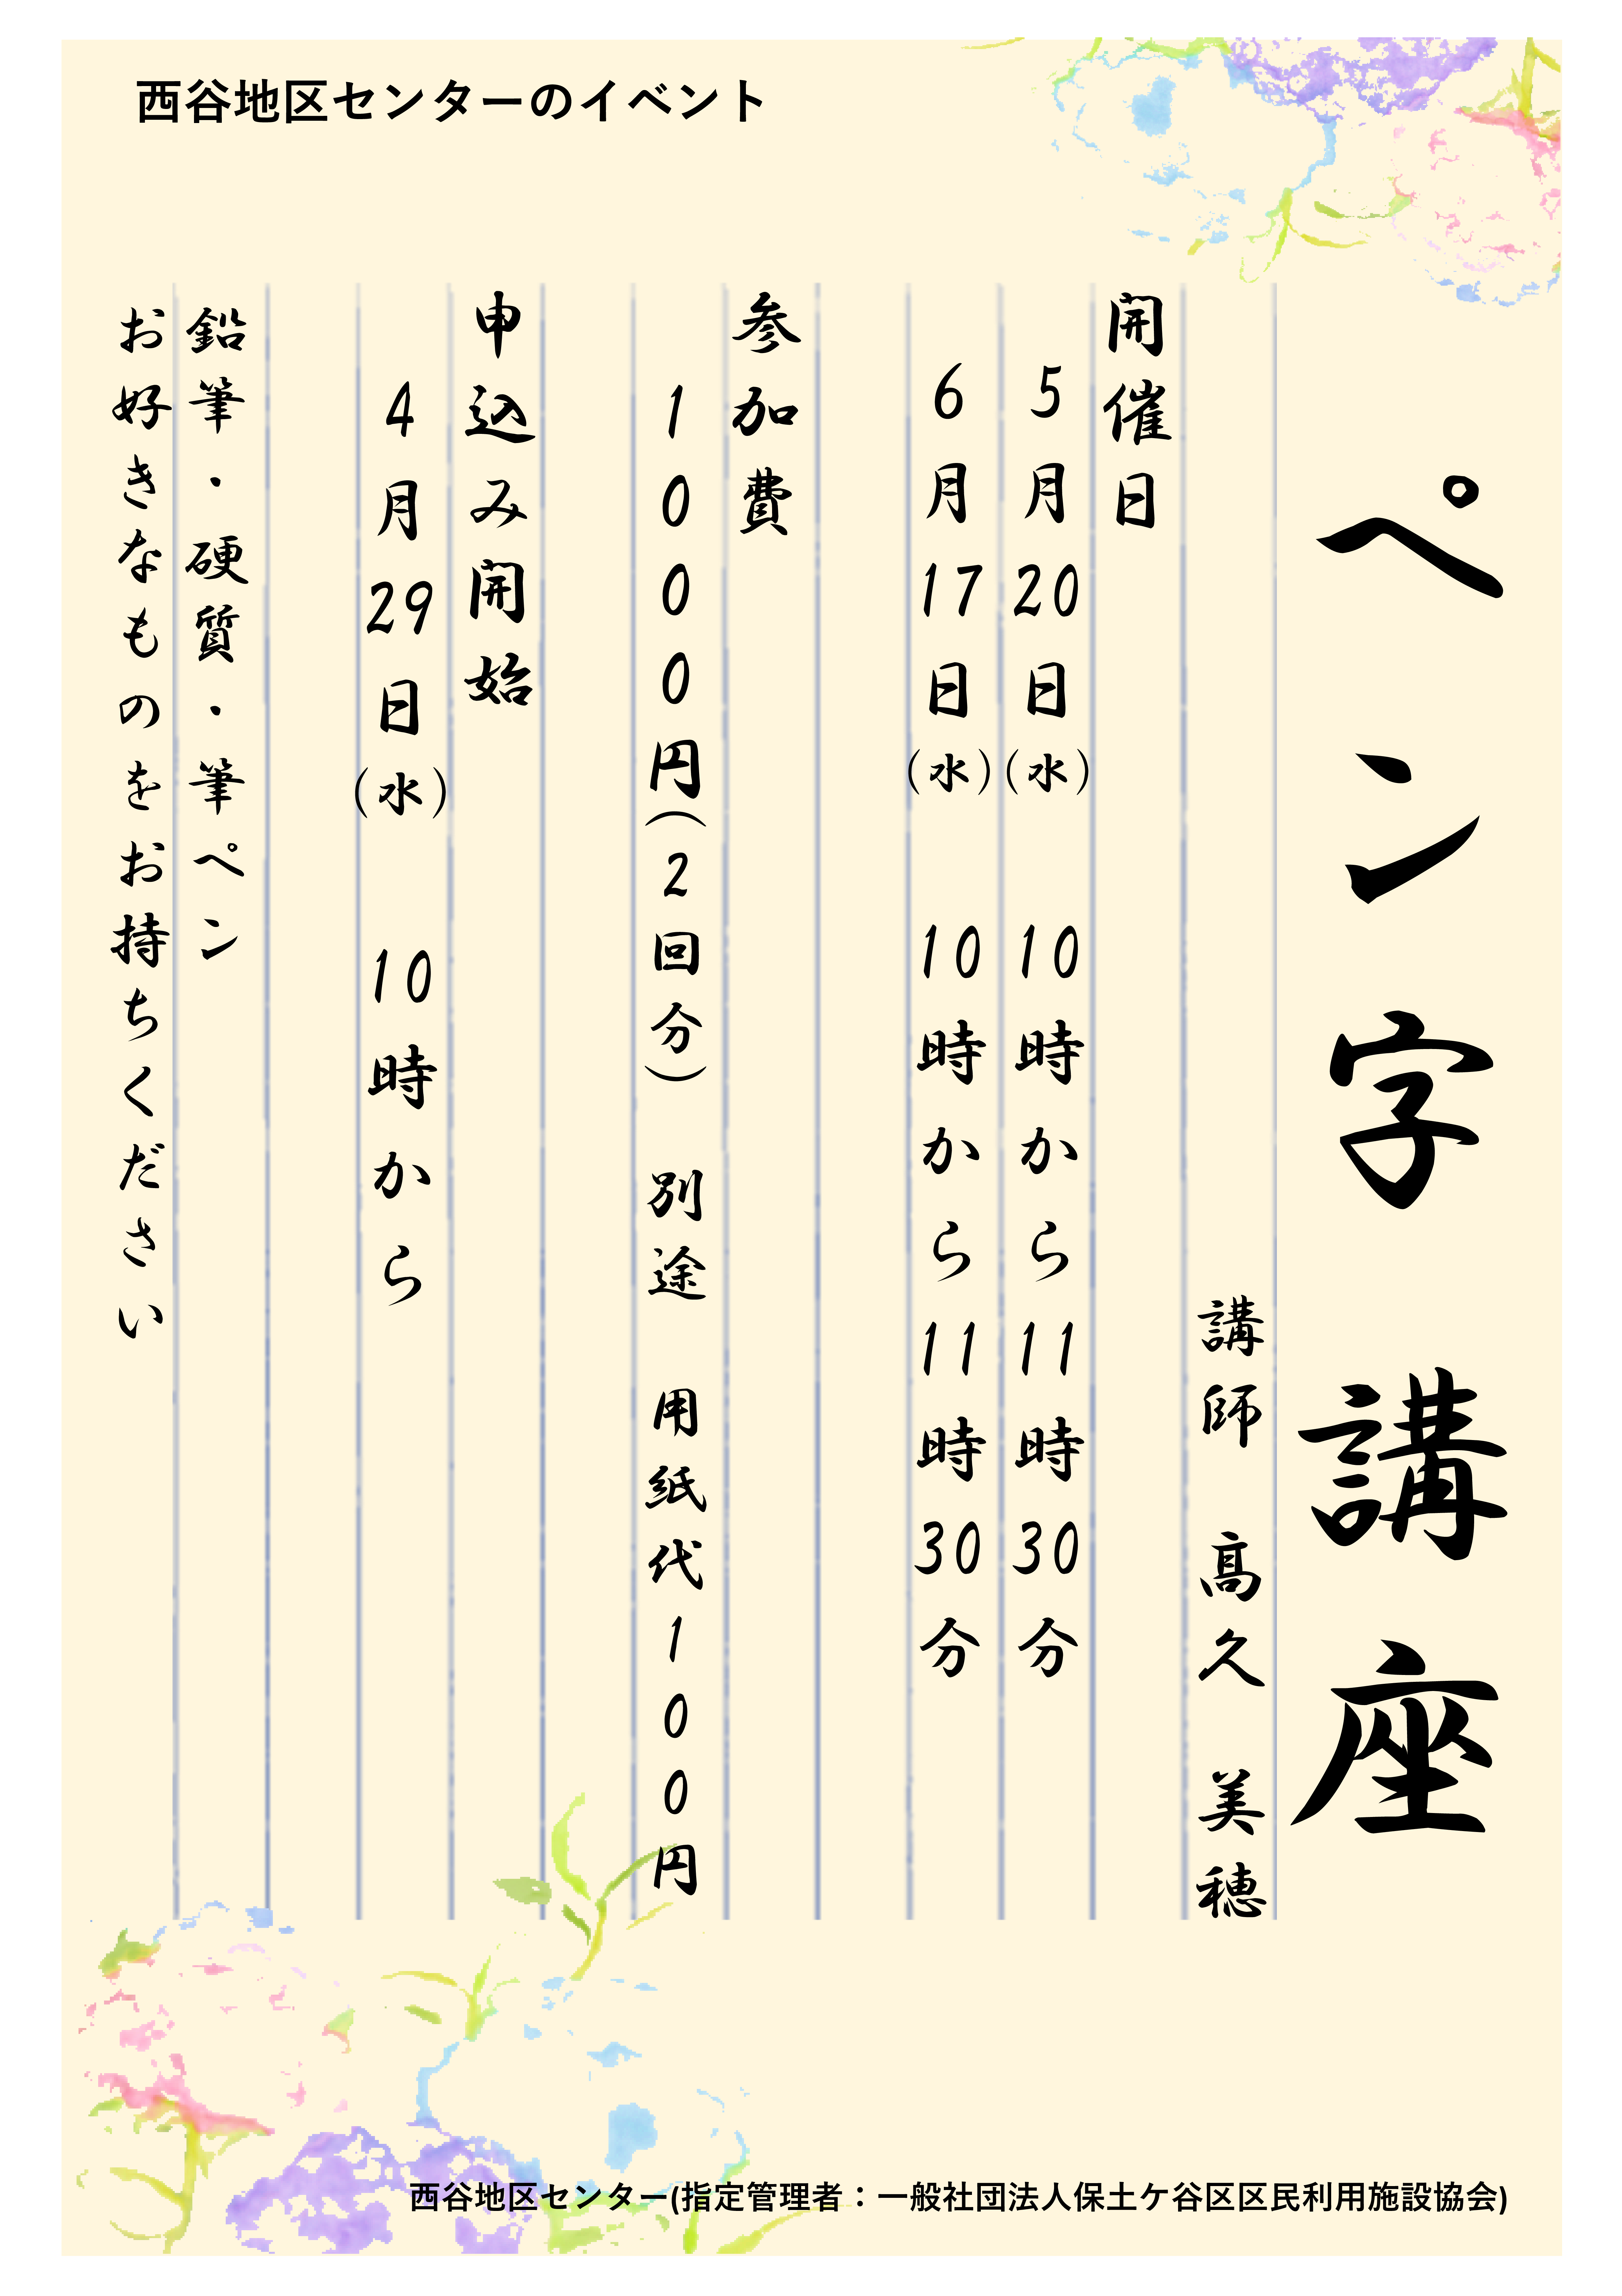 西谷地区センターのイベント
ペン字 講座
講師 髙久 美穂
開催日
5月20日(水) 10時から11時30分
6月17日(水) 10時から11時30分
参加費
1000円(2回分) 別途 用紙代100円
申込み開始
4月29日(水) 10時から
鉛筆・硬質・筆ペン
お好きなものをお持ちください
西谷地区センター(指定管理者：一般社団法人保土ケ谷区区民利用施設協会)